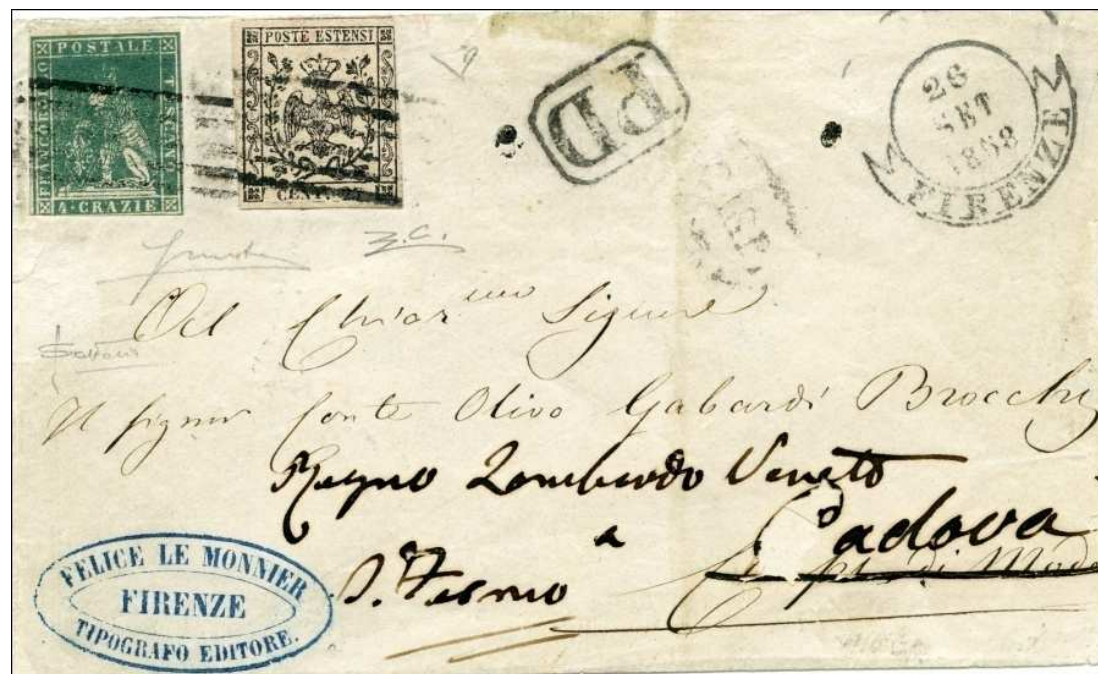 POSTALE
FRANCOBOLLO
TOSCANO
4·CRAZIE
POSTE ESTENSI
CENT.
PD
26
SET
1858
FIRENZE
Del Chiar.mo Signore
Il Signor Conte Olivo Gabardi Brocchi
Regno Lombardo Veneto
a Padova
S. Fermo
FELICE LE MONNIER
FIRENZE
TIPOGRAFO EDITORE.